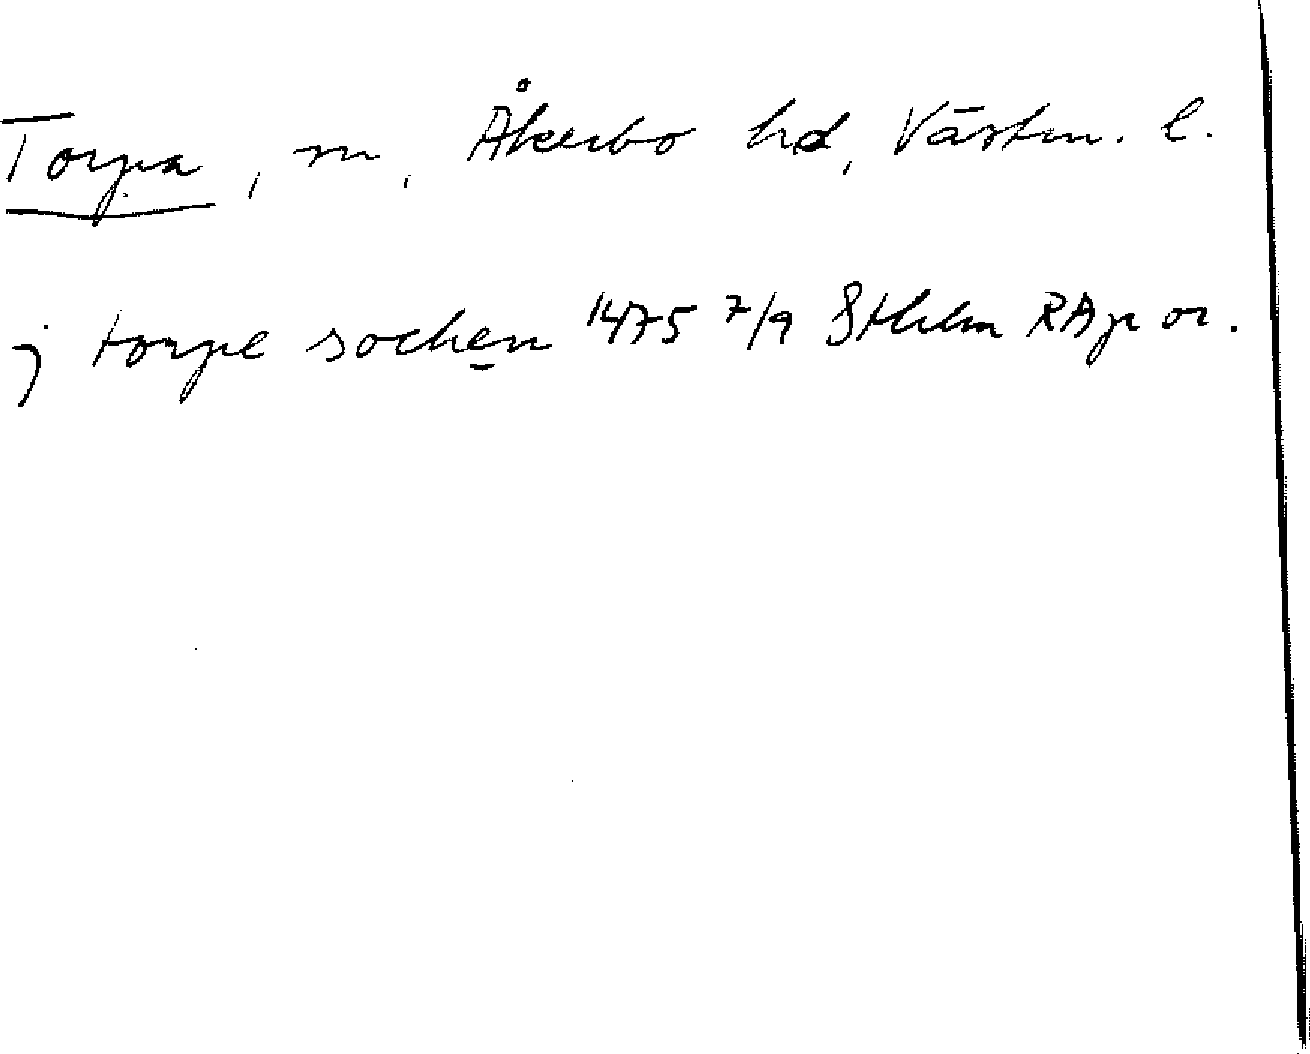 Torpa, sn, Åkerbo hd, Västm. l.
j torpe sochen 1475 7/9 Sthlm RAp or.